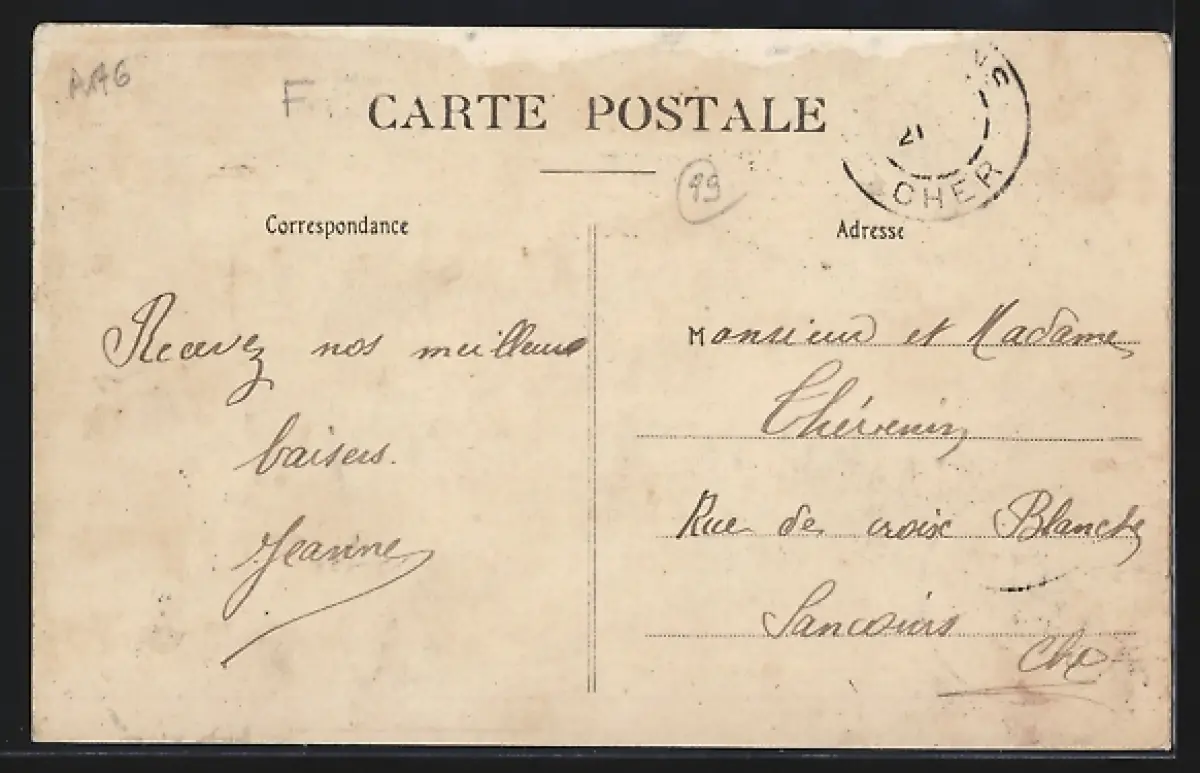 AA6
F
CARTE POSTALE
99
CHER
Correspondance
Adresse
Recevez nos meilleurs
baisers.
Jeanne
Monsieur et Madame
Thévenin
Rue de croix Blanche
Sancoins
Cher